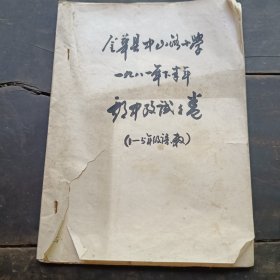 金华县中山路小学
一九八一年下半年
期中考试卷
(1—5年级语数)